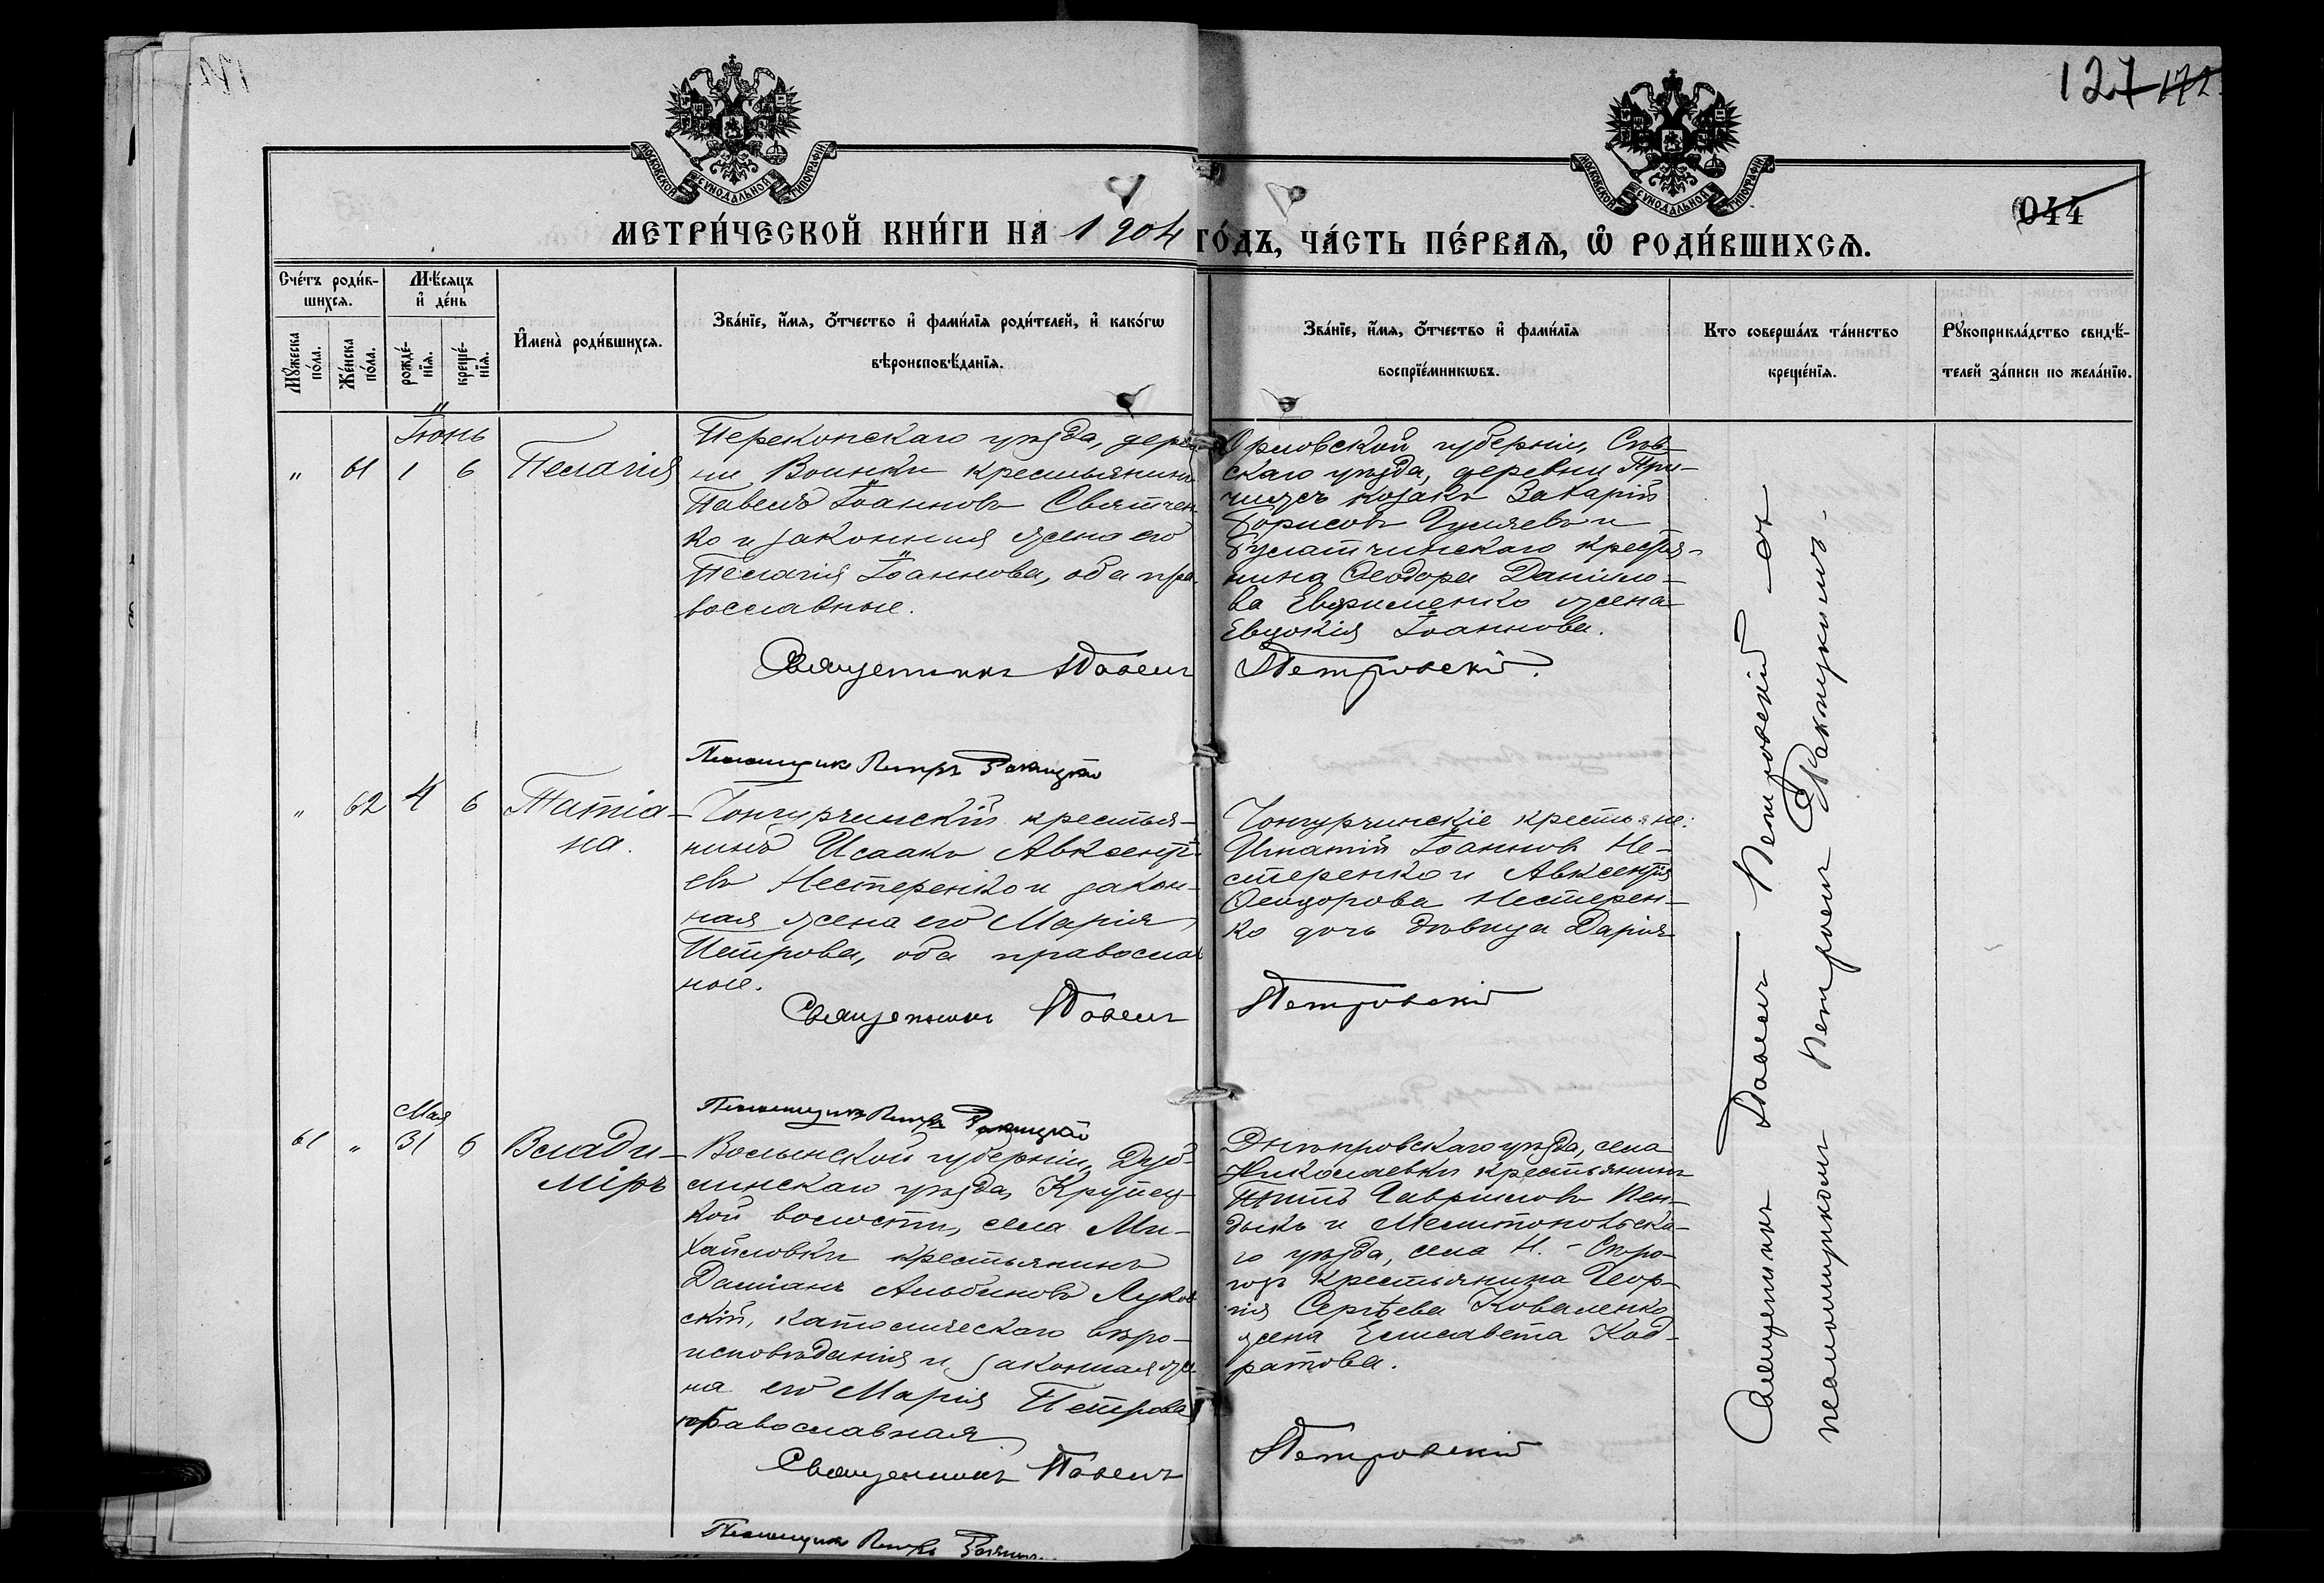 127 172
МОСКОВСКОЙ СѴНОДАЛЬНОЙ ТИПОГРАФІИ
МОСКОВСКОЙ СѴНОДАЛЬНОЙ ТИПОГРАФІИ
044
МЕТРИ́ЧЕСКОЙ КНИ́ГИ НА 1904 ГО́ДЪ, ЧА́СТЬ ПЕ́РВАЯ, Ѽ РОДИ́ВШИХСЯ.
Сче́тъ роди́в-
шихся.
Мꙋжеска по́ла.
Же́нска по́ла.
Мѣ́сяцъ
и҆ де́нь
рожде́-
нїя.
креще́-
нїя.
И҆мена̀ роди́вшихся.
Зва́нїе, и҆́мя, ѻ҆́тчество и҆ фами́лїя роди́телей, и҆ како́гѡ
вѣроисповѣ́данїя.
Зва́нїе, и҆́мя, ѻ҆́тчество и҆ фами́лїя
воспрїе́мникѡвъ.
Кто соверша́лъ та́инство
креще́нїя.
Рꙋкоприкла́дство свидѣ́-
телей за́писи по жела́нїю.
Іюнь
" 61 1 6 Пелагія
Перекопскаго уѣзда, дерев
ни Воинки крестьянинъ
Павелъ Іоанновъ Святчен
ко и законная жена его
Пелагія Іоаннова, оба пра
вославные.
Священникъ Павелъ
Орловской губерніи, Сѣв
скаго уѣзда, деревни При-
козакъ Захарій
Борисовъ и
крестья-
нина Ѳеодора Данило-
ва Евфименко жена
Евдокія Іоаннова.
Петровскій.
Псаломщикъ Петръ Ракицкій
" 62 4 6 Татіа-
на.
Чонгурчинскій крестья-
нинъ Исаакъ Авксенті
евъ Нестеренко и закон-
ная жена его Марія
Петрова, оба правосла
ные.
Священникъ Павелъ
Чонгурчинскіе крестьяне:
Игнатій Іоанновъ Не-
стеренко и Авксентія
Ѳеодорова Нестерен-
ко дочь дѣвица Дарія
Петровскій
Псаломщикъ Петръ Ракицкій
Мая
61 " 31 6 Влади-
міръ
Волынской губерніи, Дуб-
линскаго уѣзда, Крупец-
кой волости, села Ми-
хайловки крестьянинъ
Даміанъ Альбиновъ Луков
скій, католическаго вѣро-
исповѣданія и законная же
на его Марія Петрова
православная
Священникъ Павелъ
Днѣпровскаго уѣзда, села
Николаевки крестьянинъ
Титъ Гавриловъ Пен-
дыкъ и Мелитопольска-
го уѣзда, села Н. -
крестьянина Геор-
гія Сергѣева Коваленко
жена Елисавета Код-
ратова.
Петровскій
Псаломщикъ Петръ
Священникъ Павелъ Петровскій съ
псаломщикомъ Петромъ Ракицкимъ.